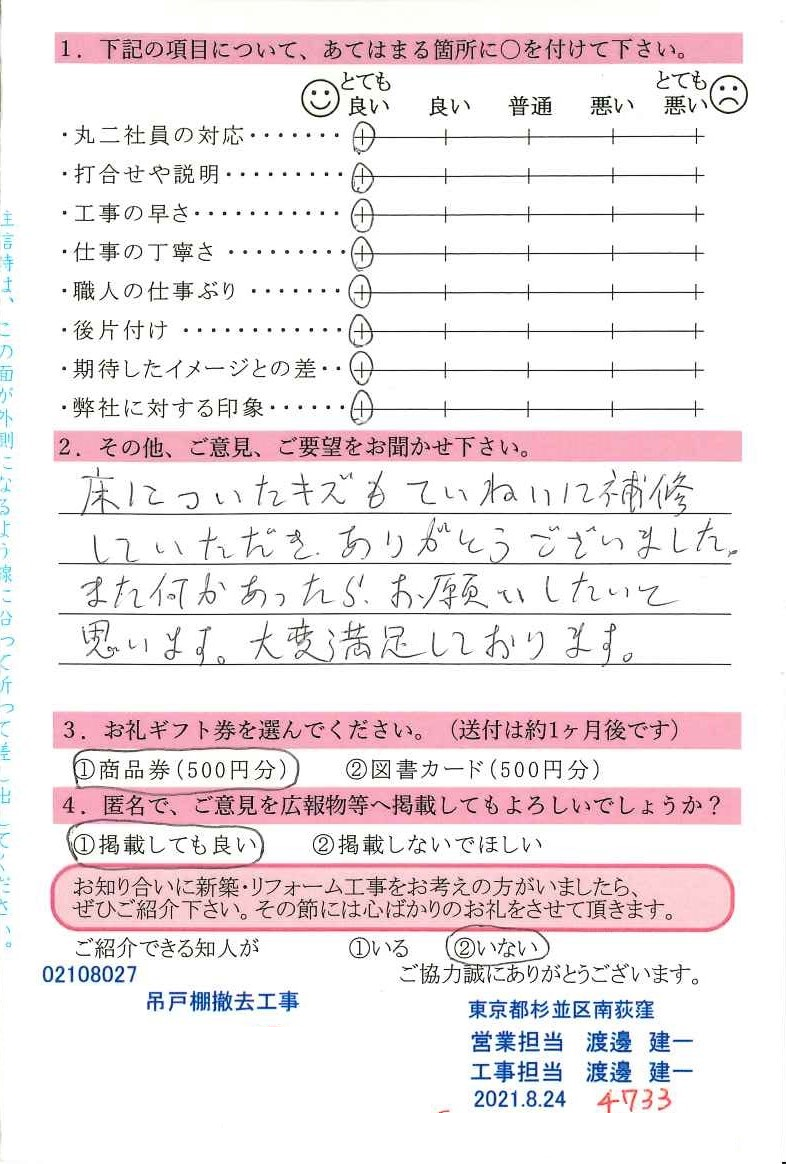 1．下記の項目について、あてはまる箇所に○を付けて下さい。
とても良い 良い 普通 悪い とても悪い
・丸二社員の対応・・・・・・・
・打合せや説明・・・・・・・・・
・工事の早さ・・・・・・・・・・・
・仕事の丁寧さ ・・・・・・・・・
・職人の仕事ぶり ・・・・・・・
・後片付け ・・・・・・・・・・・・
・期待したイメージとの差・・
・弊社に対する印象・・・・・・
2．その他、ご意見、ご要望をお聞かせ下さい。
床についたキズもていねいに補修
していただき、ありがとうございました。
また何かあったら、お願いしたいと
思います。大変満足しております。
3．お礼ギフト券を選んでください。（送付は約1ヶ月後です）
①商品券(500円分) ②図書カード(500円分)
4．匿名で、ご意見を広報物等へ掲載してもよろしいでしょうか？
①掲載しても良い ②掲載しないでほしい
お知り合いに新築・リフォーム工事をお考えの方がいましたら、
ぜひご紹介下さい。その節には心ばかりのお礼をさせて頂きます。
ご紹介できる知人が ①いる ②いない
02108027 ご協力誠にありがとうございます。
吊戸棚撤去工事
東京都杉並区南荻窪
営業担当 渡邊 建一
工事担当 渡邊 建一
2021.8.24 4733
この面が外側になるよう線に沿って折って差し出してください。